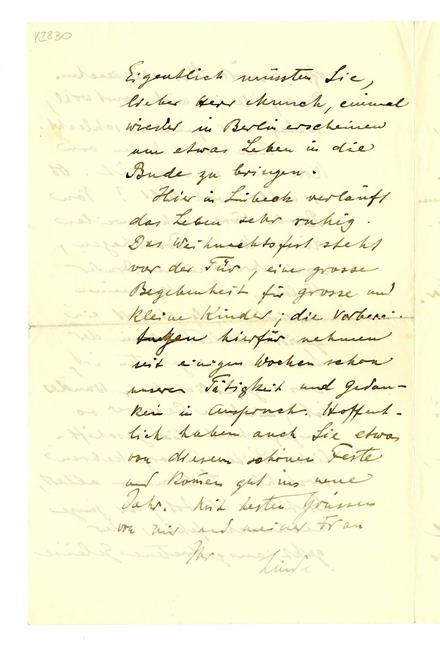 K2830
Eigentlich müssten Sie,
lieber Herr Munch, einmal
wieder in Berlin erscheinen
um etwas Leben in die
Bude zu bringen.
Hier in Lübeck verläuft
das Leben sehr ruhig.
Das Weihnachtsfest steht
vor der Tür, eine grosse
Begebenheit für grosse und
kleine Kinder; die Vorberei-
tungen hierfür nehmen
seit einigen Wochen schon
unsere Tätigkeit und Gedan-
ken in Anspruch. Hoffent-
lich haben auch Sie etwas
von diesem schönen Feste
und kom̄en gut ins neue
Jahr. Mit besten Grüssen
von mir und meiner Frau
Ihr
Linde